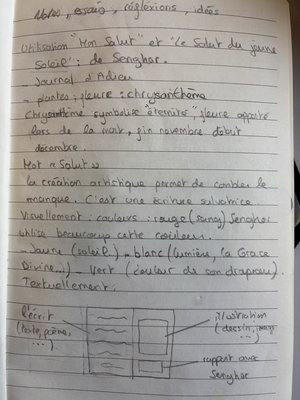 Notes, essais, réflexions, idées
Utilisation "Mon Salut" et "Le Salut du jeune
Soleil" : de Senghor.
- Journal d'Adieu
- plantes ; fleurs : chrysanthème
Chrysanthème symbolise "éternité" fleure apporté
lors de la mort, fin novembre début
décembre.
Mot « Salut »
la création artistique permet de combler le
manque. C'est une écriture salvatrice.
Visuellement : couleurs : rouge (sang) Senghor
utilise beaucoup cette couleur.
- Jaune (soleil) - blanc (lumière, la Grace
Divine...) - Vert (couleur de son drapeau).
Textuellement :
l'écrit
(texte, poème,
...)
illustration
(dessin, image
...)
rapport avec
Senghor